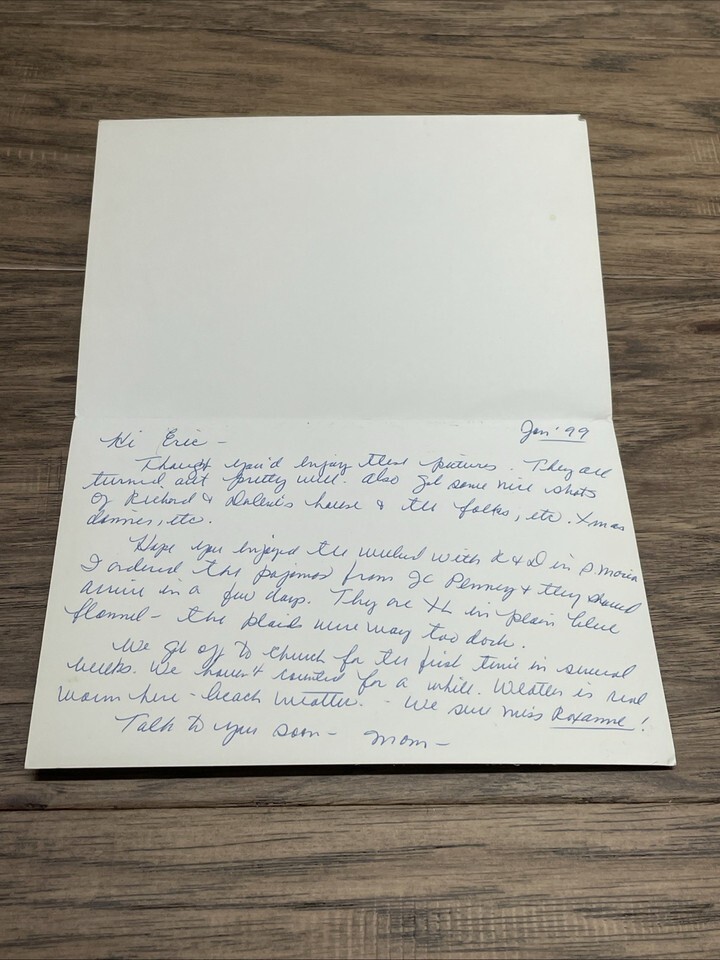 Jan '99
Hi Eric -
Thought you'd enjoy these pictures. They all
turned out pretty well. Also got some nice shots
of Richard & house & the folks, etc. Xmas
dinner, etc.
Hope you enjoyed the weekend with R & D in S. Maria
I ordered the pajamas from JC Penney & they should
arrive in a few days. They are XL in plain blue
flannel - the plaids were way too dark.
We got off to church for the first time in several
weeks. We haven't counted for a while. Weather is real
warm here - beach weather. - We sure miss Roxanne!
Talk to you soon - Mom -